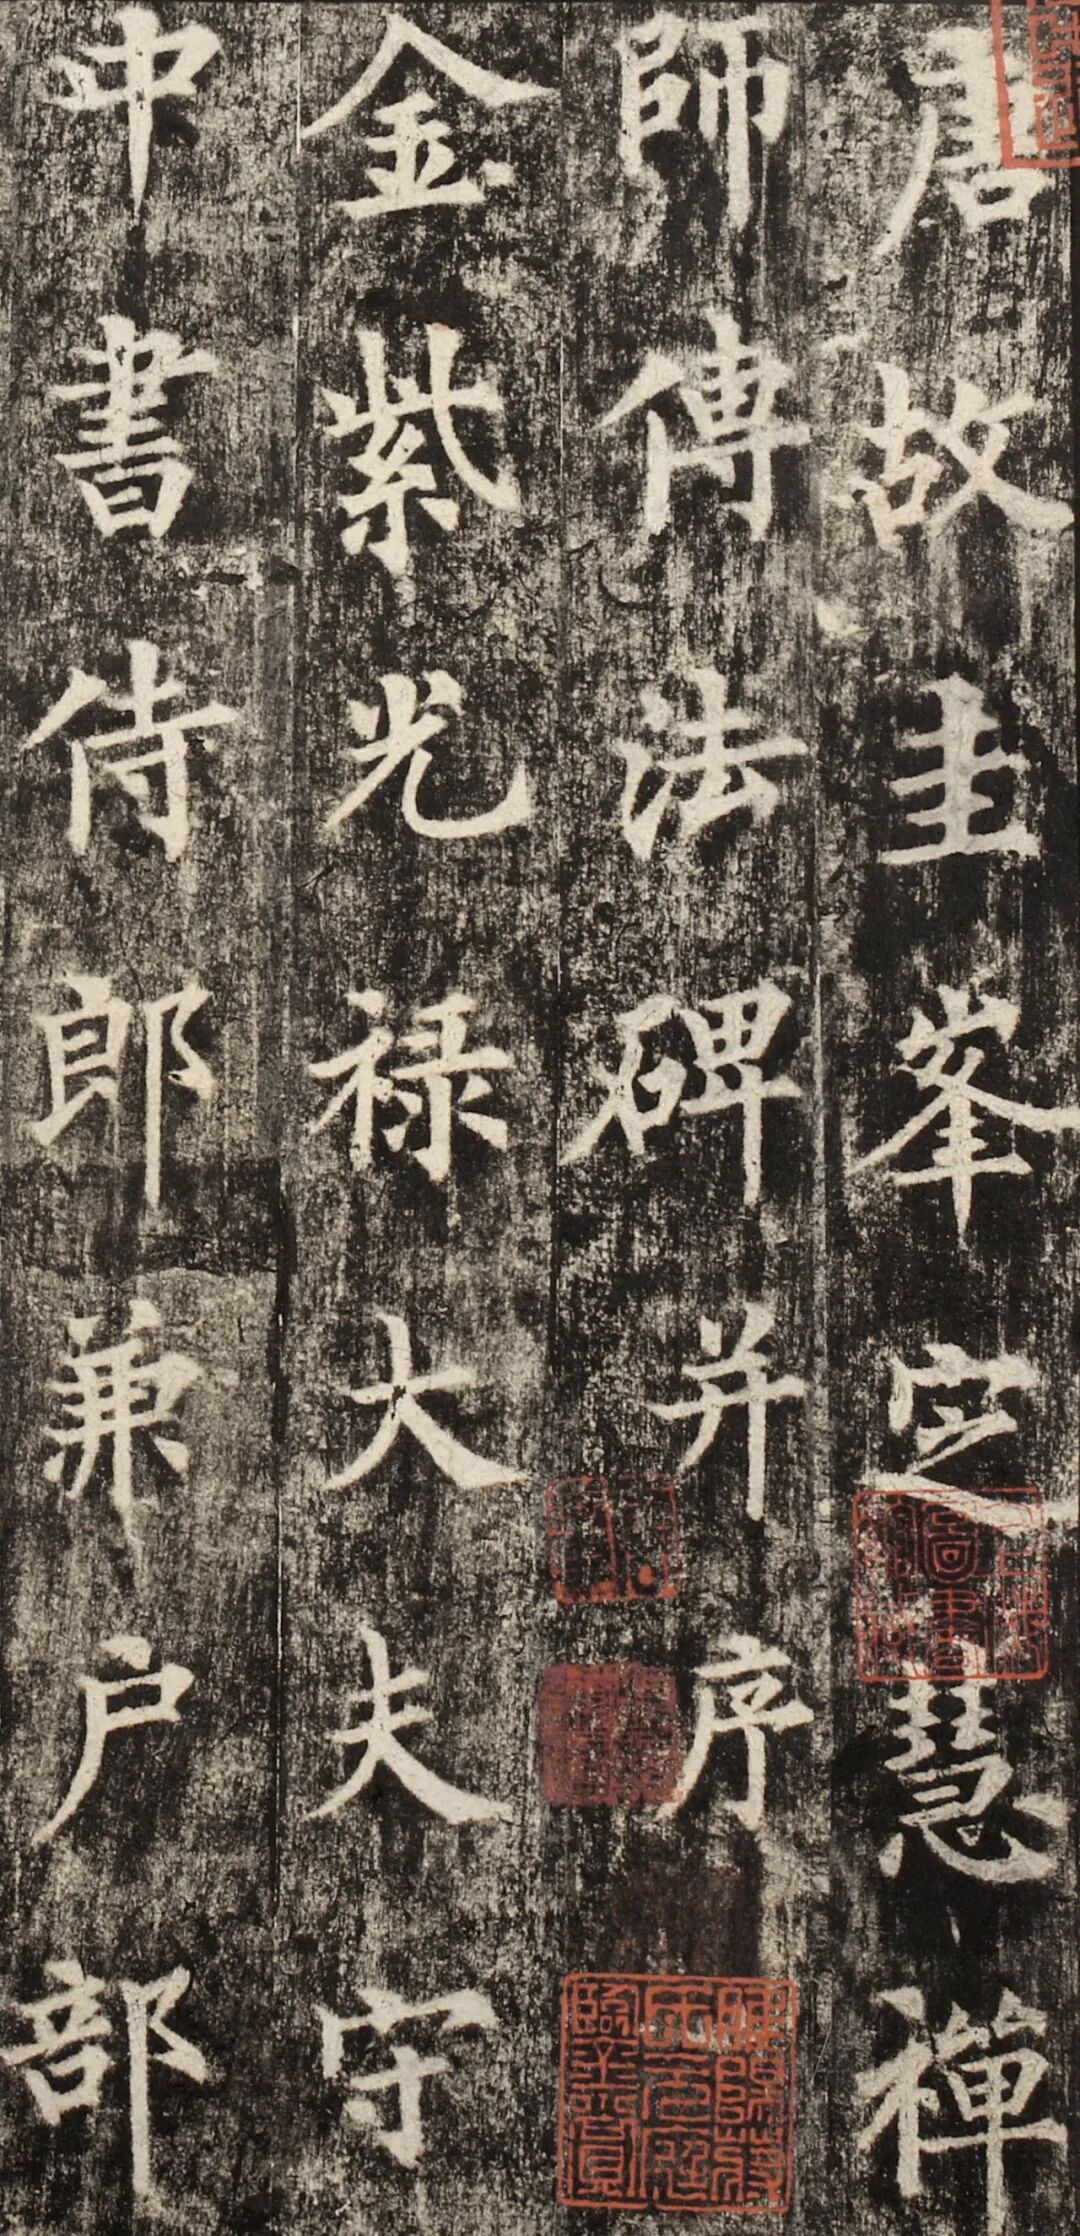 唐故圭峯定慧禪
師傳法碑并序
金紫光禄大夫守
中書侍郎兼户部